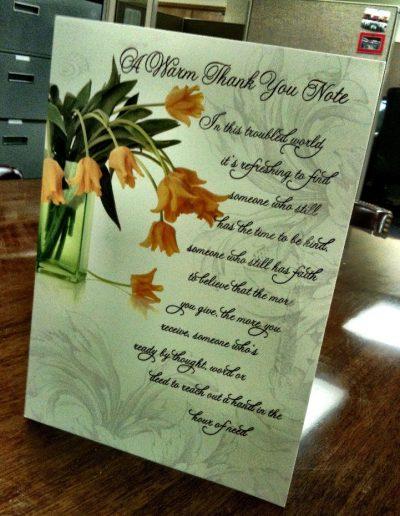 A Warm Thank You Note
In this troubled world
it's refreshing to find
someone who still
has the time to be kind,
someone who still has faith
to believe that the mor
you give, the more you
receive, someone who's
ready by thought, word or
deed to reach out a hand in the
hour of need